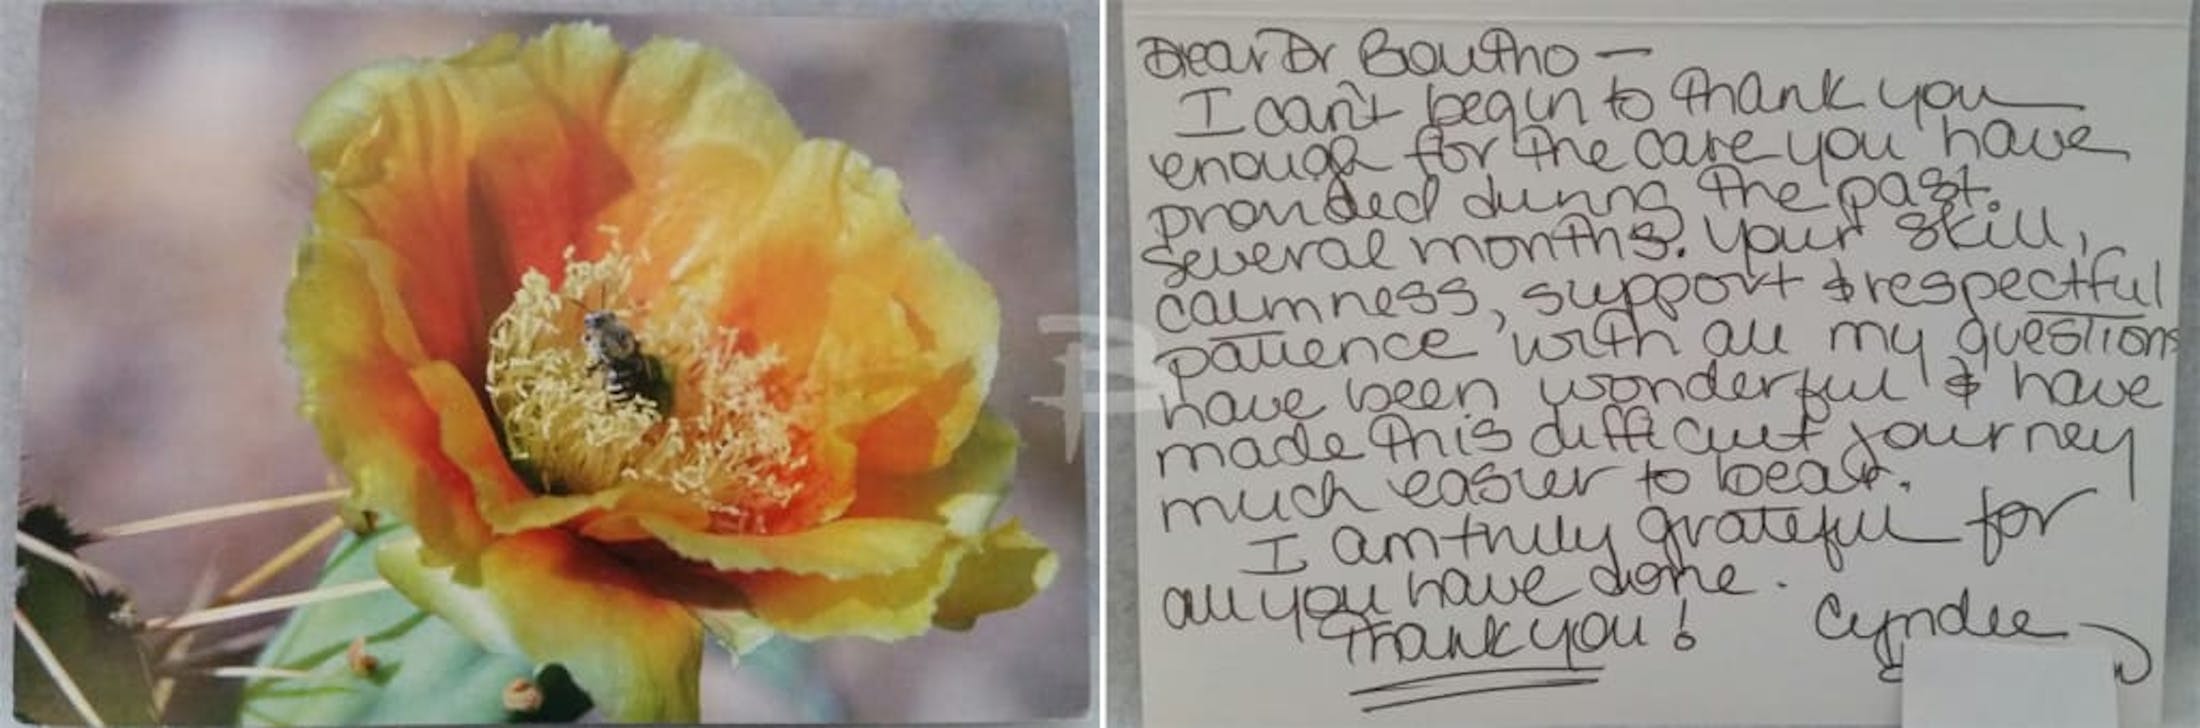 Dear Dr Boutho —
I can't begin to thank you
enough for the care you have
provided during the past
several months. Your skill,
calmness, support & respectful
patience with all my questions
have been wonderful & have
made this difficult journey
much easier to bear.
I am truly grateful for
all you have done.
Thank you!
Cyndee